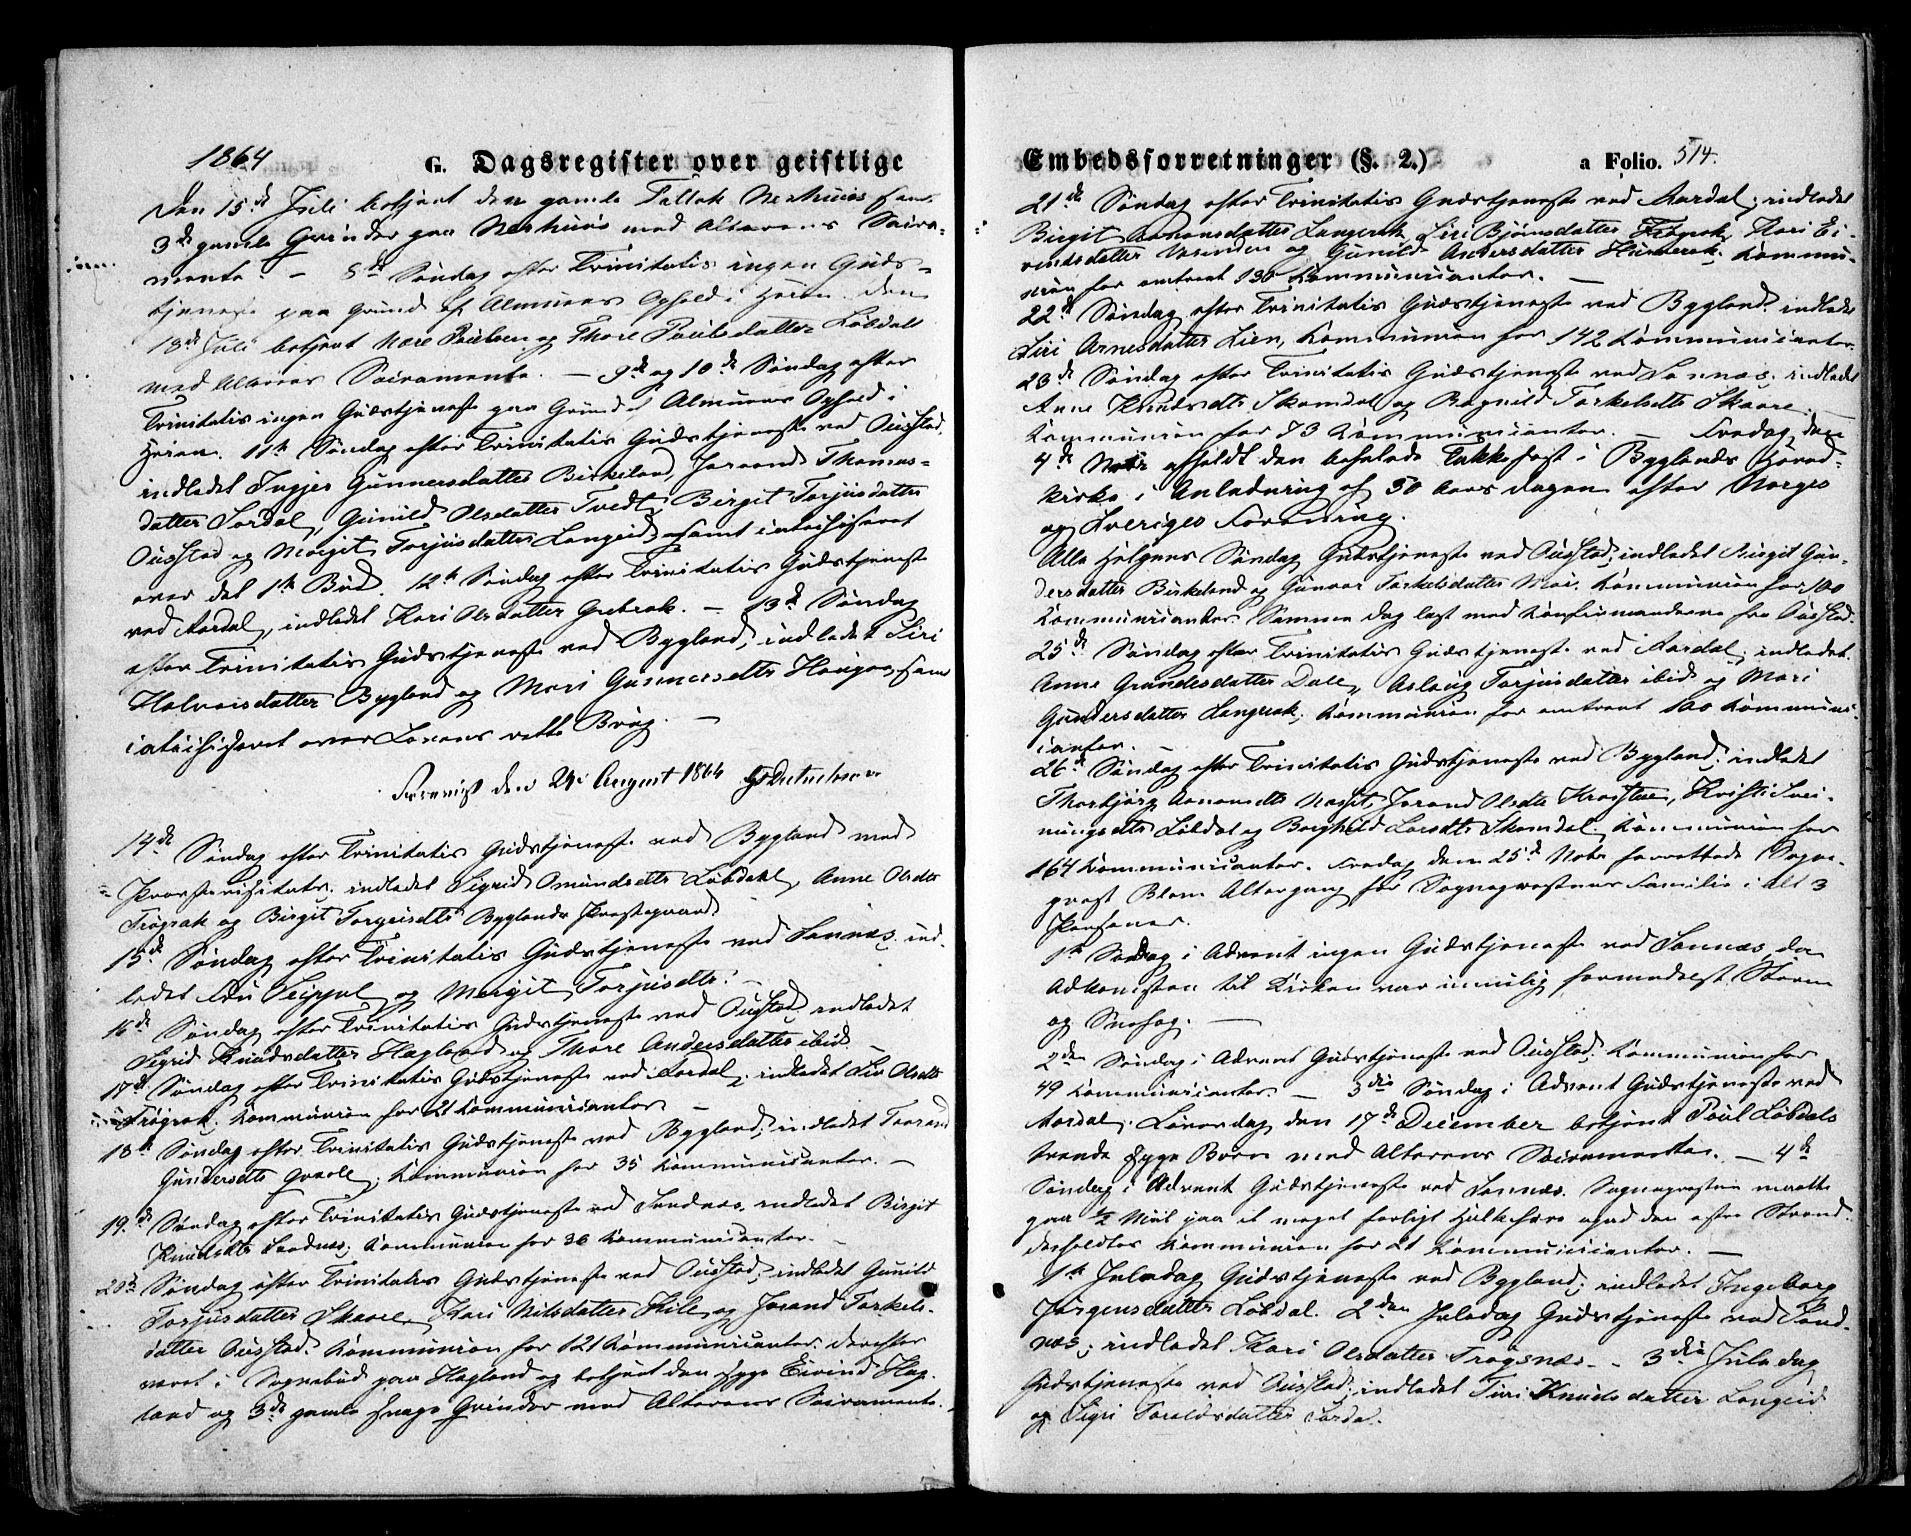 1864
G. Dagsregister over geistlige
Den 15de Juli betjent den gamle Tallak Neshuus samt
3de gamle Qvinder paa Neshuus med Alterens Sacra-
mente. – 8de Søndag efter Trinitatis ingen Guds-
tjeneste paa Grund af Almuens Ophold i Heien. Den
18de Juli betjent Paulsen og Thore Paulsdatter Løbdal
med Alterens Sacramente. – 9de og 10de Søndag efter
Trinitatis ingen Gudstjeneste paa Grund af Almuens Ophold i
Heien. 11te Søndag efter Trinitatis Gudstjeneste ved Ousstad,
indledet Ingjer Gunnersdatter Birkeland, Joraand Thomas-
datter Sordal, Gunild Olsdatter Tvedt, Birgit Torjusdatter
Ousstad og Margit Torjusdatter Longeid samt catechiseret
over det 1te Bud. 12te Søndag efter Trinitatis Gudstjeneste
ved Aardal, indledet Kari Olsdatter – 13de Søndag
efter Trinitatis Gudstjeneste ved Bygland, indledet Siri
Halvorsdatter Bygland og Mari Gunnersdtr Haugen, samt
catechiseret over Lovens rette Brug. –
den 24de August 1864
14de Søndag efter Trinitatis Gudstjeneste ved Bygland med
Provstevisitats, indledet Sigrid Omundsdtr Løbdahl, Anne Olsdtr
Frøysak og Birgit Torgeisdtr Byglands Præstegaard.
15de Søndag efter Trinitatis Gudstjeneste ved Sannæs, ind-
ledet Fru og Margit Torjusdtr. –
16de Søndag efter Trinitatis Gudstjeneste ved Ousstad, indledet
Sigrid Knudsdatter Hagland og Thore Andersdatter ibid. –
17de Søndag efter Trinitatis Gudstjeneste ved Aardal, indledet Liv Olsdtr
Frøysak, Kommunion for 21 Kommunicanter –
18de Søndag efter Trinitatis Gudstjeneste ved Bygland, indledet
Gundersdtr Kommunion for 35 Kommunicanter. –
19de Søndag efter Trinitatis Gudstjeneste ved Sandnæs, indledet Birgit
Knudsdtr Sandnæs, Kommunion for 36 Kommunicanter. –
20de Søndag efter Trinitatis Gudstjeneste ved Ousstad, indledet Gunild
Torjusdatter Skaare, Kari Nilsdatter og Jorand Torkels-
datter Ousstad. Kommunion for 121 Kommunicanter. Derefter
været i Sognebud paa Hagland og betjent den syge Eivind Hag-
land og 3de gamle svage Qvinder med Alterens Sacramente.
Embedsforretninger (§. 2.)
a Folio. 514.
21de Søndag efter Trinitatis Gudstjeneste ved Aardal, indledet
Birgit Aanonsdatter Langerak, Siri Bjørnsdatter Frøysak, Kari Ei-
vindsdatter og Gunild Andersdatter Kommu-
nion for omtrent 130 Kommunicanter. –
22de Søndag efter Trinitatis Gudstjeneste ved Bygland, indledet
Siri Arnesdatter Lien, Kommunion for 142 Kommunicanter.
23de Søndag efter Trinitatis Gudstjeneste ved Sannæs, indledet
Anne Knudsdtr Skomdal og Ragnild Torkelsdtr Skaare. –
Kommunion for 73 Kommunicanter. – Fredag den
4de Novbr afholdt den befalede Takkefest i Byglands Hoved-
kirke i Anledning af 50 Aars dagen efter Norges
og Sveriges Forening.
Alle Helgens Søndag Gudstjeneste ved Ousstad, indledet Birgit Gun-
dersdatter Birkeland og Gunvor Torkelsdatter Moi. Kommunion for 100
Kommunicanter. Samme Dag læst med Konfirmanderne fra Ousstad.
25de Søndag efter Trinitatis Gudstjeneste ved Aardal, indledet
Anne Gundersdatter Dale, Aslaug Torjusdatter ibid og Mari
Gundersdatter Langerak, Kommunion for omtrent 100 Kommuni-
canter. –
26de Søndag efter Trinitatis Gudstjeneste ved Bygland, indledet
Thorbjørg Aanonsdtr Jorand Olsdtr Kristi Svei-
nungsdtr Løbdal og Borghild Larsdtr Skomdal. Kommunion for
164 Kommunicanter. Fredag den 25de Novbr forrettede Sogne-
prest Blom Altergang for Sogneprestens Familie i alt 3
Personer.
1te Søndag i Advent ingen Gudstjeneste ved Sannæs, da
Adkomsten til Kirken var umulig formedelst Storm
og Snefog. –
2den Søndag i Advent Gudstjeneste ved Ousstad, Kommunion for
49 Kommunicanter. – 3die Søndag i Advent Gudstjeneste ved
Aardal. Løverdag den 17de December betjent Paul Løbdals
trende syge Børn med Alterens Sacramente. – 4de
Søndag i Advent Gudstjeneste ved Sannæs. Sognepresten maatte
gaa ½ Miil paa et meget farligt Holkeføre den Strand.
desholdtes Kommunion for 21 Kommunicanter. –
1te Juledag Gudstjeneste ved Bygland, indledet Ingeborg
Jørgensdatter Løbdal. 2den Juledag Gudstjeneste ved Sand-
næs, indledet Kari Olsdatter Frøysnæs. – 3die Juledag
Gudstjeneste ved Ousstad, indledet Siri Knudsdatter Longeid
og Sigri Toraldsdatter Sordal.